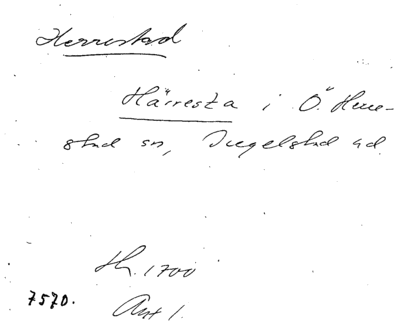 Herrestad
Härresta i Ö. Herre-
stad sn, Ingelstad hd.
Hh. 1700
7570. Avt 1.